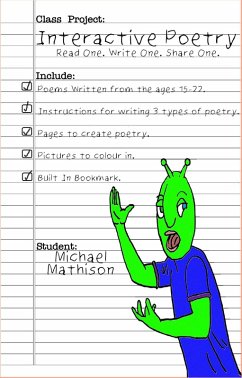 Class Project:
Interactive Poetry
Read One. Write One. Share One.
Include:
Poems Written from the ages 15-22.
Instructions for writing 3 types of poetry.
Pages to create poetry.
Pictures to colour in.
Built In Bookmark.
Student:
Michael
Mathison